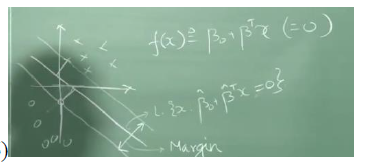 f(x) ≜ β₀ + βᵀx (=0)
L: {x: β̂₀ + β̂ᵀx = 0}
Margin